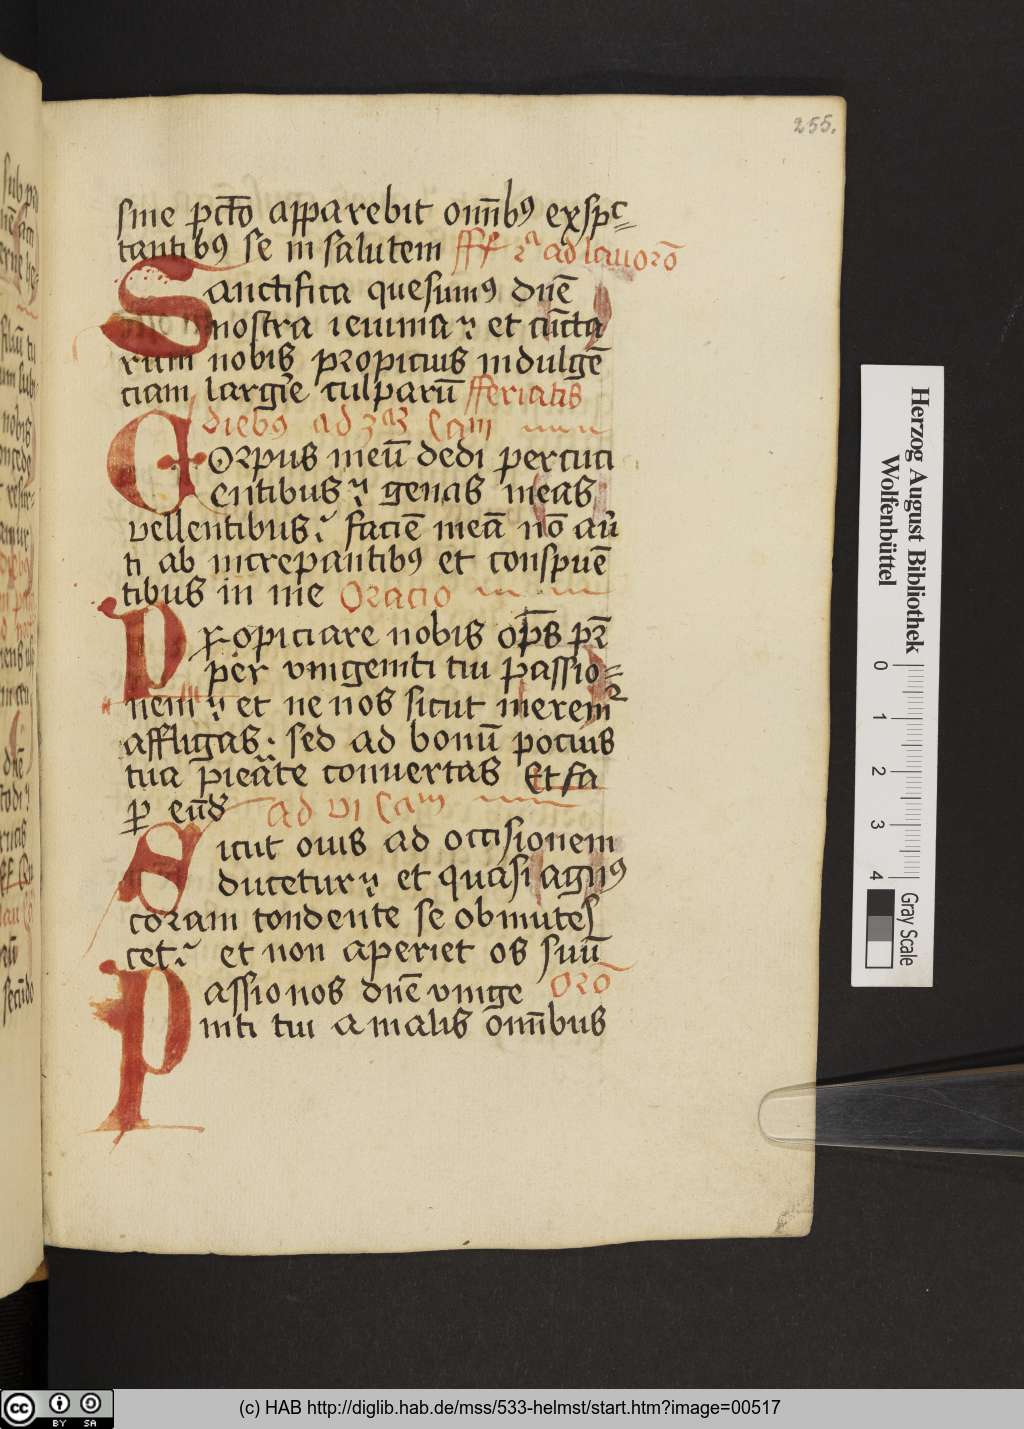 255.
sine pctō apparebit omībꝯ exspc=
tantibꝯ se in salutem fff 2ᵃ ad lauorō
Sanctifica quesumꝯ dn̄e
nostra ieiunia et cūcta
rum nobis propicius indulgē
ciam largire culparū fferiatis
diebꝯ ad 3ᵃꝫ Cam
Corpus meū dedi percuci
entibus genas meas
vellentibus faciē meā nō au̓
ti ab increpantibꝯ et conspuē
tibus in me Oracio
Propiciare nobis op̄s pr̄
per vnigeniti tui passio=
nem et ne nos sicut merem̄
affligas. sed ad bonū pocius
tua pieāte conuertas Et fa
ꝑ eūd ad VI Cam
Sicut ouis ad occisionem
ducetur et quasi agnꝯ
coram tondente se obmutes
cet et non aperiet os suū
Passionos dn̄e vnige orō
niti tui a malis om̄ibus
Herzog August Bibliothek
Wolfenbüttel
0 1 2 3 4
Gray Scale
cc BY SA
(c) HAB http://diglib.hab.de/mss/533-helmst/start.htm?image=00517